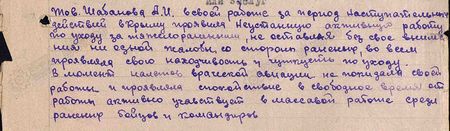 Тов. Шабанова А.И. в своей работе за период наступательных
действий в Крыму проявила неустанную активную работу
по уходу за тяжелоранеными, не оставляя без свое внима
ния ни одной жалобы, со стороны раненых, во всем
проявляла свою находчивость и чуткость по уходу.
В момент налетов вражеской авиации не покидала своей
работы и проявляла спокойствие в свободное время от
работы активно участвует в массовой работе среди
раненых бойцов и командиров